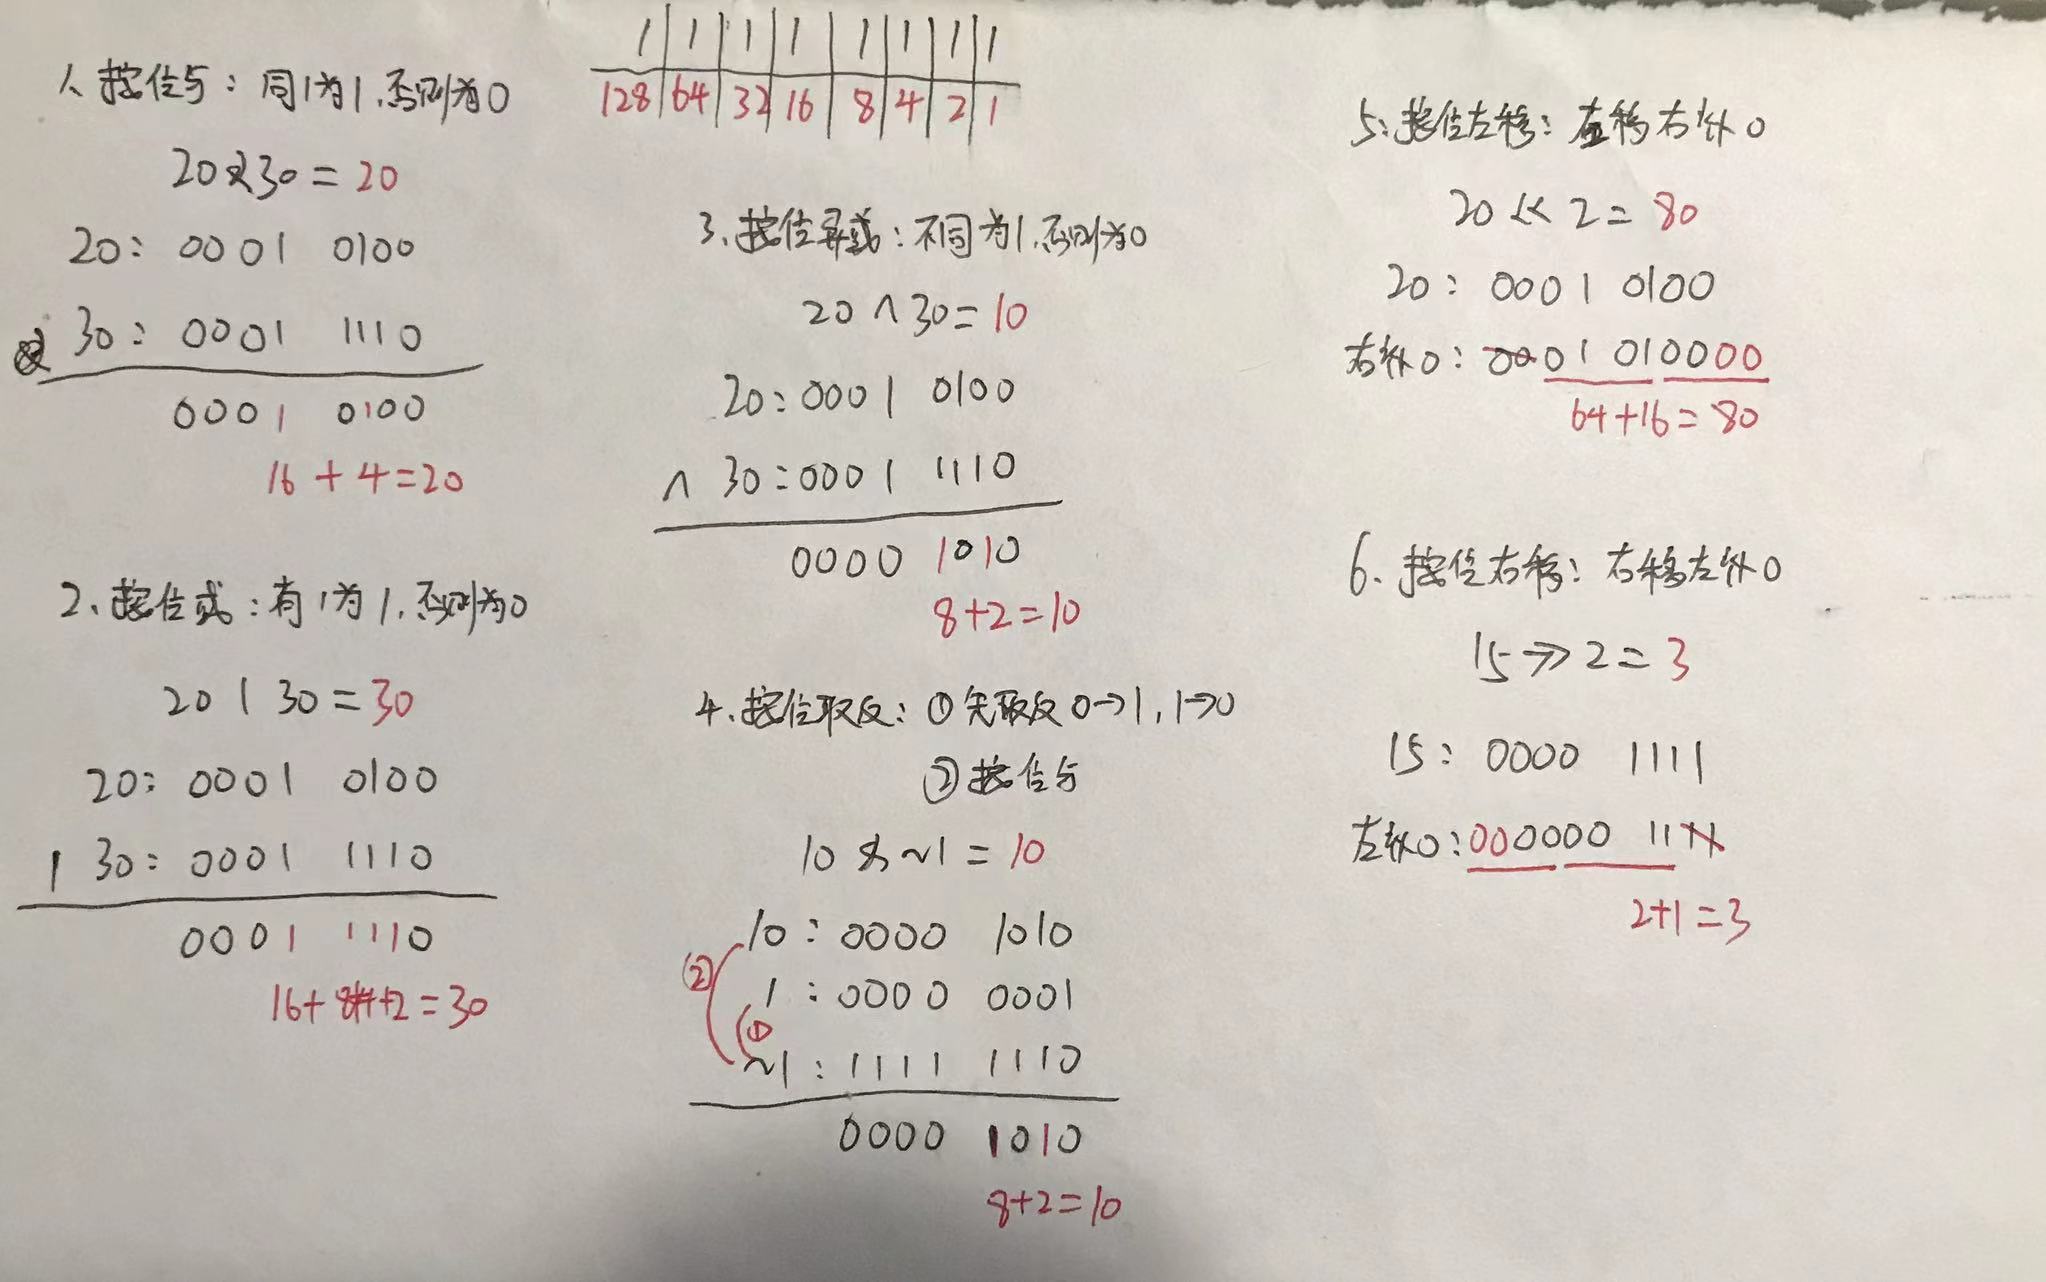 1 1 1 1 1 1 1 1
128 64 32 16 8 4 2 1
1、按位与：同1为1，否则为0
20&30=20
20：0001 0100
& 30：0001 1110
0001 0100
16+4=20
2、按位或：有1为1，否则为0
20 | 30=30
20：0001 0100
| 30：0001 1110
0001 1110
16+8+4+2=30
3、按位异或：不同为1，否则为0
20 ^ 30=10
20：0001 0100
^ 30：0001 1110
0000 1010
8+2=10
4、按位取反：①先取反 0→1，1→0
②按位与
10 & ~1=10
10：0000 1010
②
1：0000 0001
①
~1：1111 1110
0000 1010
8+2=10
5、按位左移：左移右补0
20 << 2=80
20：0001 0100
右补0：0001 010000
64+16=80
6、按位右移：右移左补0
15 >> 2=3
15：0000 1111
左补0：000000 1111
2+1=3